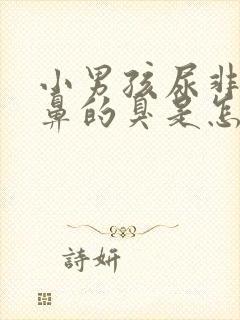 小男孩尿非
鼻的臭是怎
詩妍